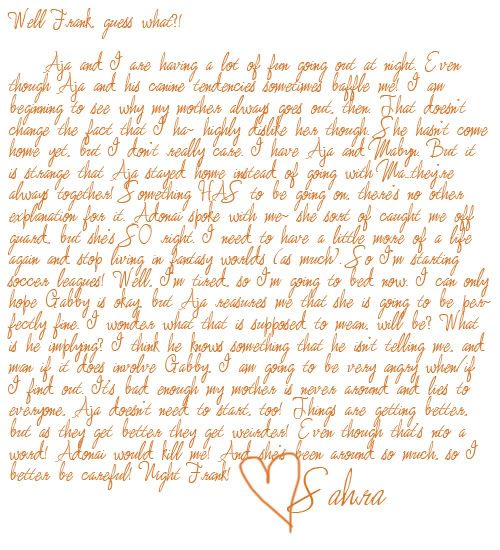 Well Frank guess what?!
Aja and I are having a lot of fun going out at night. Even
though Aja and his canine tendencies sometimes baffle me! I am
beginning to see why my mother always goes out, then. That doesn't
change the fact that I ha~ highly dislike her though. She hasn't come
home yet, but I don't really care. I have Aja and Mabyn. But it
is strange that Aja stayed home instead of going with Ma..they're
always together! Something HAS to be going on, there's no other
explanation for it. Adonai spoke with me~ she sort of caught me off
guard, but she's SO right. I need to have a little more of a life
again and stop living in fantasy worlds (as much). So I'm starting
soccer leagues! Well, I'm tired, so I'm going to bed now. I can only
hope Gabby is okay, but Aja reasures me that she is going to be per-
fectly fine. I wonder what that is supposed to mean, will be? What
is he implying? I think he knows something that he isn't telling me, and
man if it does involve Gabby, I am going to be very angry when/if
I find out. It's bad enough my mother is never around and lies to
everyone, Aja doesn't need to start, too! Things are getting better,
but as they get better they get weirder! Even though that's nto a
word! Adonai would kill me! And she's been around so much, so I
better be careful! Night Frank!
Sahara